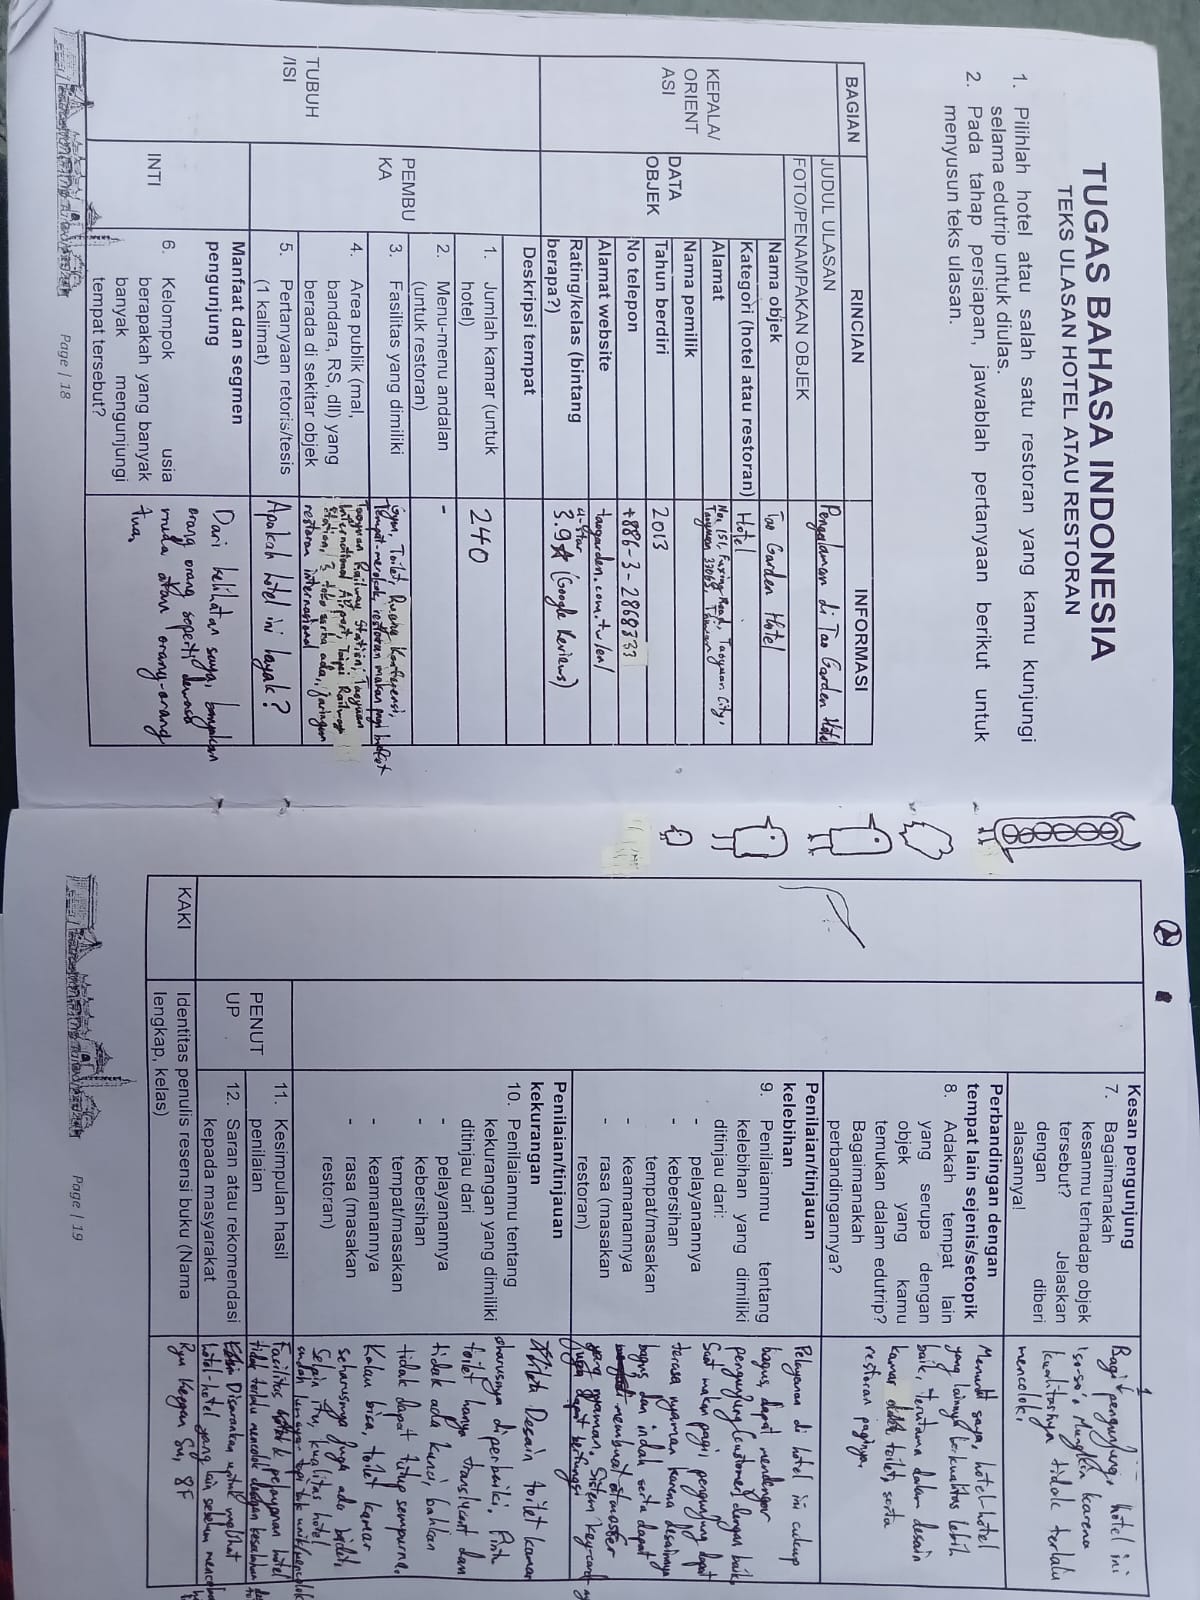 TUGAS BAHASA INDONESIA
TEKS ULASAN HOTEL ATAU RESTORAN
1. Pilihlah hotel atau salah satu restoran yang kamu kunjungi
selama edutrip untuk diulas.
2. Pada tahap persiapan, jawablah pertanyaan berikut untuk
menyusun teks ulasan.
BAGIAN RINCIAN INFORMASI
KEPALA/
ORIENT
ASI
JUDUL ULASAN Pengalaman di Tao Garden Hotel
FOTO/PENAMPAKAN OBJEK
DATA
OBJEK
Nama objek Tao Garden Hotel
Kategori (hotel atau restoran) Hotel
Alamat No. 151, Fuxing Road, Taoyuan City,
Taoyuan 33065, Taiwan
Nama pemilik
Tahun berdiri 2013
No telepon +886-3-2868333
Alamat website taogarden.com.tw/en/
Rating/kelas (bintang
berapa?)
4-star
3.9☆ (Google Reviews)
TUBUH
/ISI
PEMBU
KA
Deskripsi tempat
1. Jumlah kamar (untuk
hotel)
240
2. Menu-menu andalan
(untuk restoran)
-
3. Fasilitas yang dimiliki
Gym, Toilet, Ruang Konferensi,
Tempat merokok, restoran makan pagi
4. Area publik (mal,
bandara, RS, dll) yang
berada di sekitar objek
Taoyuan Railway Station, Taoyuan
International Airport, Taipei Railway
Station, 3 toko serba ada, jaringan
restoran internasional
5. Pertanyaan retoris/tesis
(1 kalimat)
Apakah hotel ini layak?
INTI
Manfaat dan segmen
pengunjung
6. Kelompok usia
berapakah yang banyak
banyak mengunjungi
tempat tersebut?
Dari kelihatan saya, banyakan
orang orang seperti dewasa
muda atau orang-orang
tua.
Page | 18
Kesan pengunjung
7. Bagaimanakah
kesanmu terhadap objek
tersebut? Jelaskan
dengan diberi
alasannya!
Bagi pengunjung, hotel ini
'so-so'. Mungkin karena
kualitasnya tidak terlalu
mencolok.
Perbandingan dengan
tempat lain sejenis/setopik
8. Adakah tempat lain
yang serupa dengan
objek yang kamu
temukan dalam edutrip?
Bagaimanakah
perbandingannya?
Menurut saya, hotel-hotel
yang lainnya berkualitas lebih
baik, terutama dalam desain
kamar, toilet, serta
restoran paginya.
Penilaian/tinjauan
kelebihan
9. Penilaianmu tentang
kelebihan yang dimiliki
ditinjau dari:
- pelayanannya
- kebersihan
tempat/masakan
- keamanannya
- rasa (masakan
restoran)
Pelayanan di hotel ini cukup
bagus, dapat mendengar
pengunjung (customer) dengan baik.
Saat makan pagi, pengunjung dapat
terasa nyaman karena desainnya
bagus dan indah serta dapat
membuat atmosfer
yang nyaman. Sistem key-card
juga dapat berfungsi
Penilaian/tinjauan
kekurangan
10. Penilaianmu tentang
kekurangan yang dimiliki
ditinjau dari
- pelayanannya
- kebersihan
tempat/masakan
- keamanannya
- rasa (masakan
restoran)
Desain toilet kamar
seharusnya diperbaiki. Pintu
toilet hanya translucent dan
tidak ada kunci, bahkan
tidak dapat tutup sempurna.
Kalau bisa, toilet kamar
seharusnya juga ada bidet.
Selain itu, kualitas hotel
PENUT
UP
11. Kesimpulan hasil
penilaian
Fasilitas, pelayanan hotel
tidak terlalu mencolok dengan
12. Saran atau rekomendasi
kepada masyarakat
Disarankan untuk melihat
hotel-hotel yang lain sebelum
KAKI
Identitas penulis resensi buku (Nama
lengkap, kelas)
Ryu Keegan Su, 8F
Page | 19